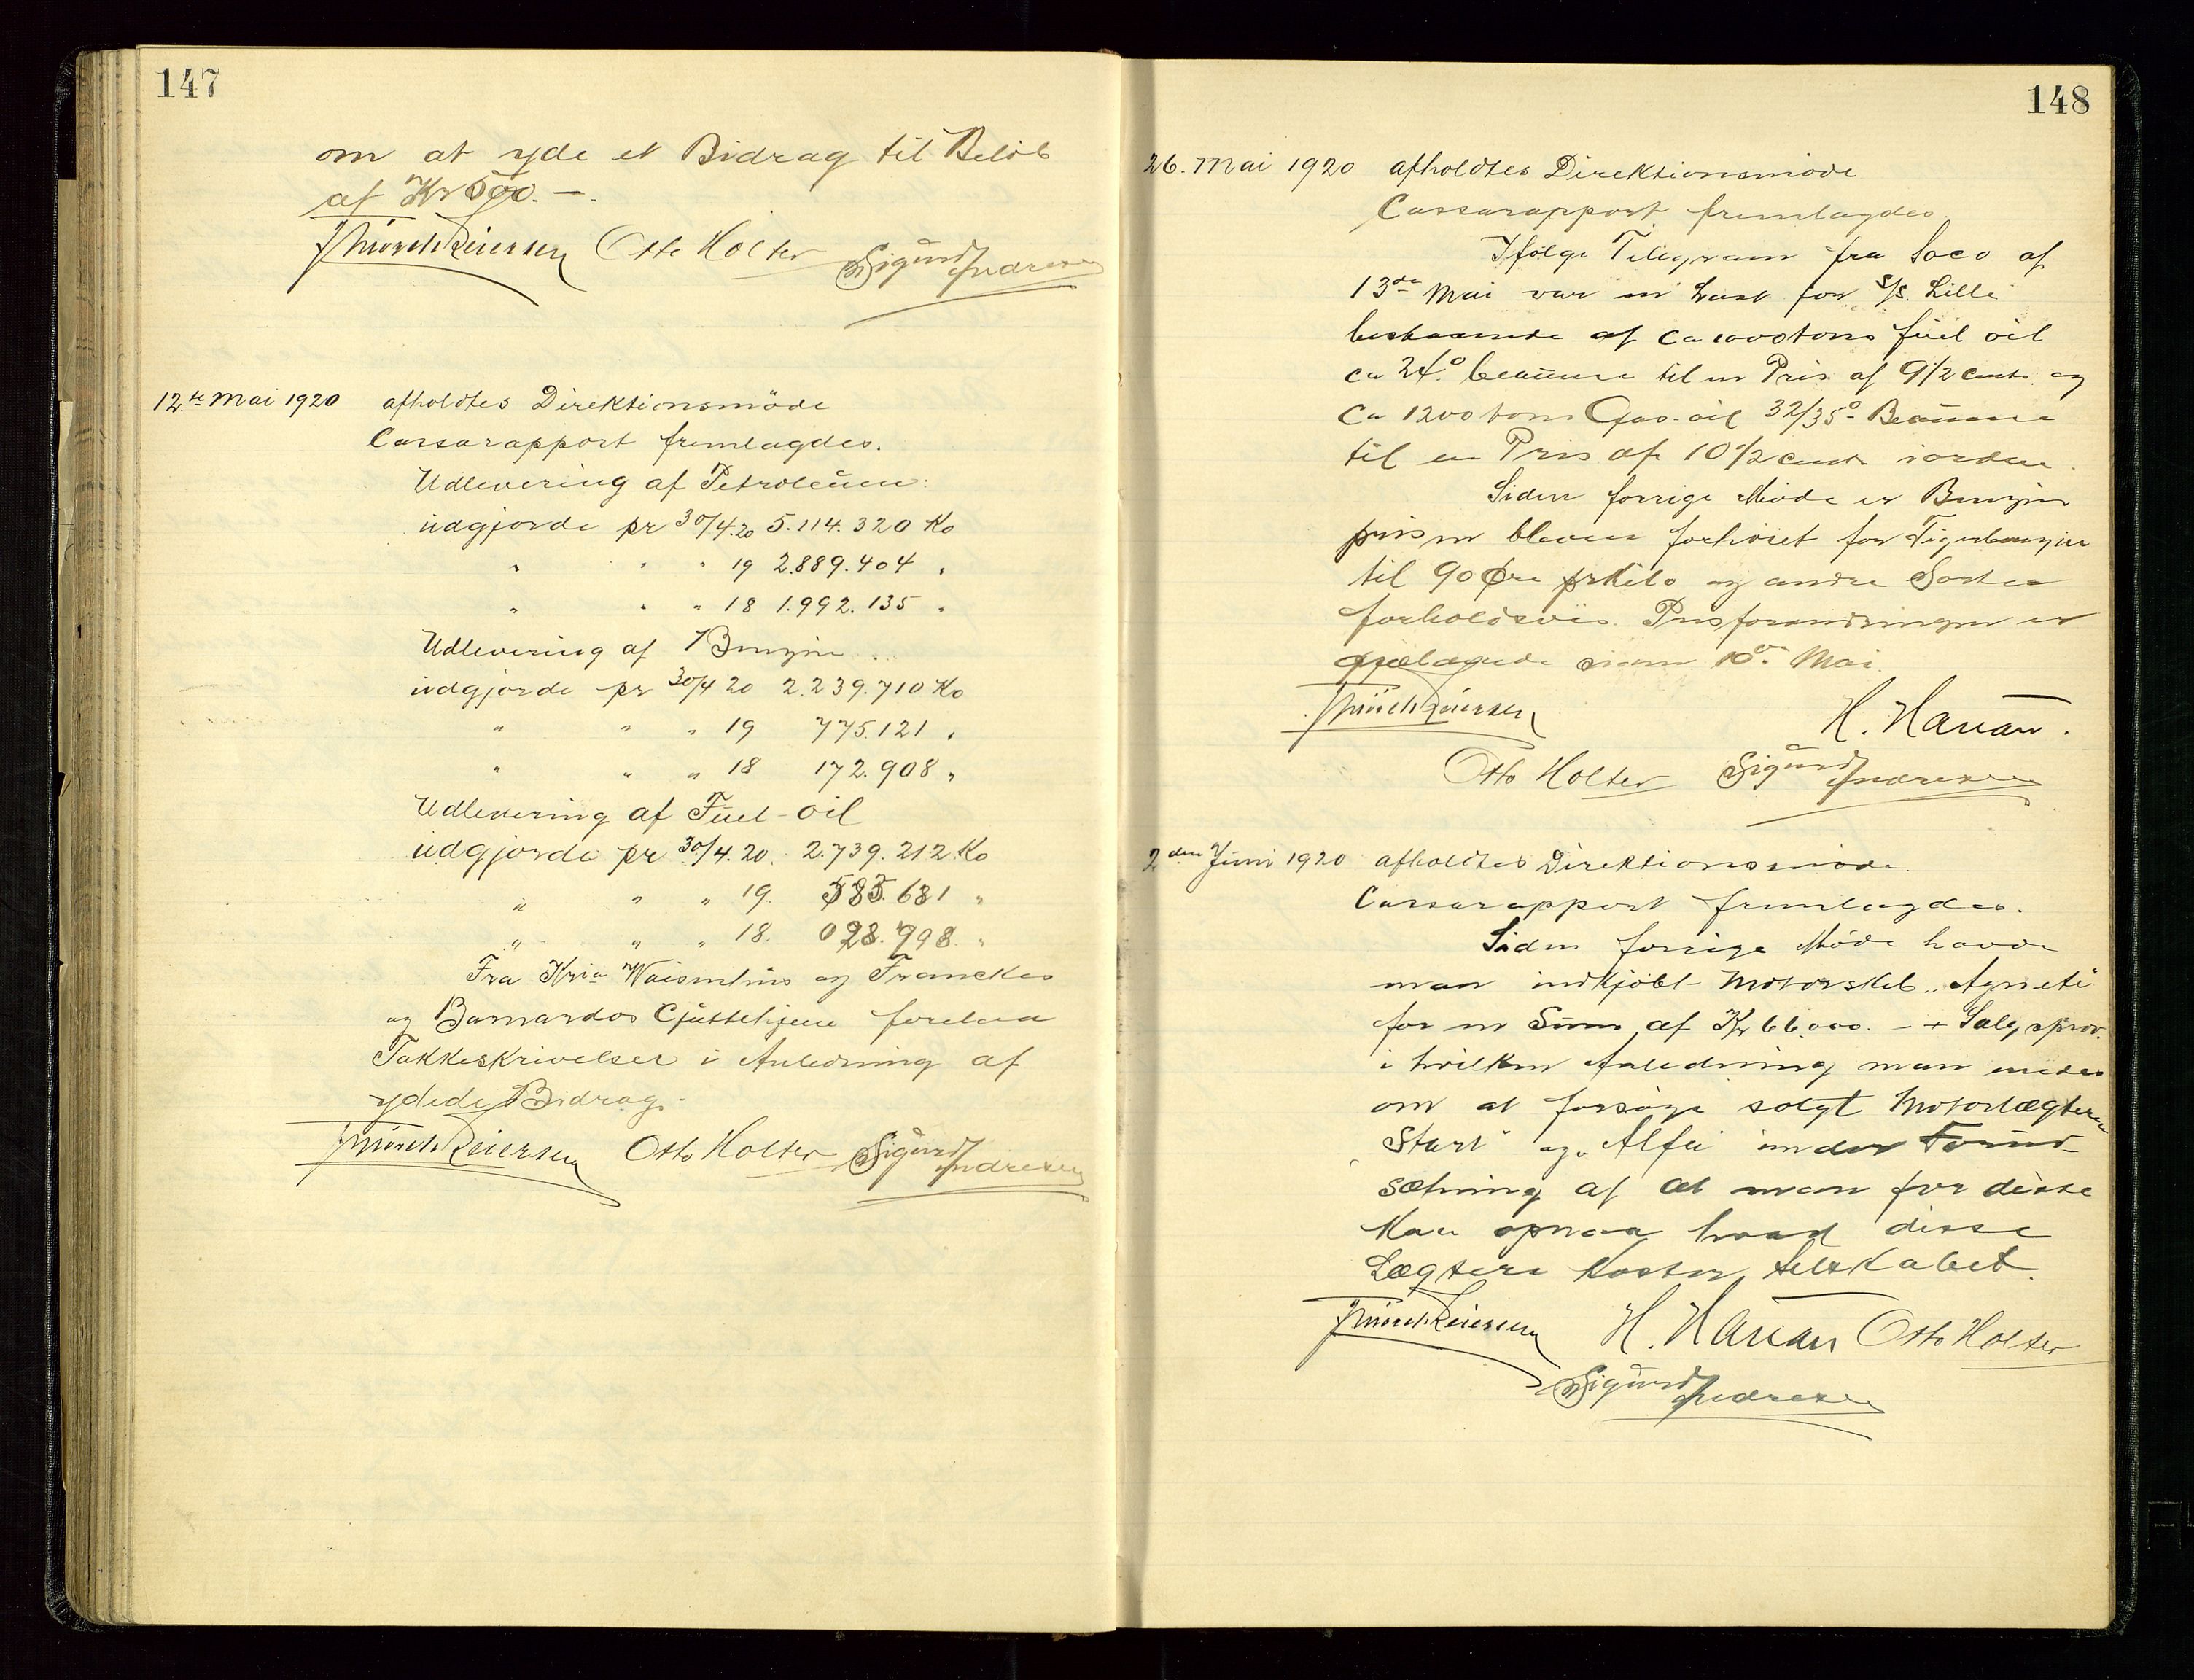 147
om at yde et Bidrag til Beløb
af Kr 500.—.
Otto Holter Sigurd Andresen
12.te Mai 1920 afholdtes Direktionsmöde
Cassarapport fremlagdes.
Udlevering af Petroleum:
udgjorde pr 30/4.20 5.114.320 Ko
" " " 19 2.889.404 "
" " " 18 1.992.135 "
Udlevering af Benzin
udgjorde pr 30/4 20 2.239.710 Ko
" " " 19 775.121 "
" " " 18 172.908 "
Udlevering af Fuel-oil
udgjorde pr 30/4.20. 2.739.212 Ko
" " " 19. 585.681 "
" " " 18. 028.798 "
Fra Kria Waisenhus og Franckes
og Barnardos Gjuttehjem forelaa
Takkeskrivelser i Anledning af
ydede Bidrag.
Otto Holter Sigurd Andresen
148
26. Mai 1920 afholdtes Direktionsmöde
Cassarapport fremlagdes.
Ifölge Telegram fra Soco af
13de Mai var en Last for S/S. Lilli
bestaaende af ca 1000 tons fuel oil
ca 24.° beaume til en Pris af 9 1/2 cents og
ca 1200 tons Gas-oil 32/35° Beaume
til en Pris af 10 1/2 cents i orden.
Siden forrige Möde er Benzin
prisen bleven forhöiet for Tigerbenzin
til 90 Øre pr Kilo og andre Sorter
forholdsvis. Prisforandringen er
gjældende siden 10de Mai.
H. Harian.
Otto Holter Sigurd Andresen
2den Juni 1920 afholdtes Direktionsmöde.
Cassarapport fremlagdes.
Siden forrige Möde havde
man indkjöbt Motorskib „Agnete"
for en Sum af Kr 66.000.- + Salgsprov.
i hvilken Anledning man enedes
om at forsöge solgt Motorlægterne
„Start" og „Alfa" under Forud-
sætning af at man for disse
kan opnaa hvad disse
Lægtere koster selskabet.
H. Harian Otto Holter
Sigurd Andresen